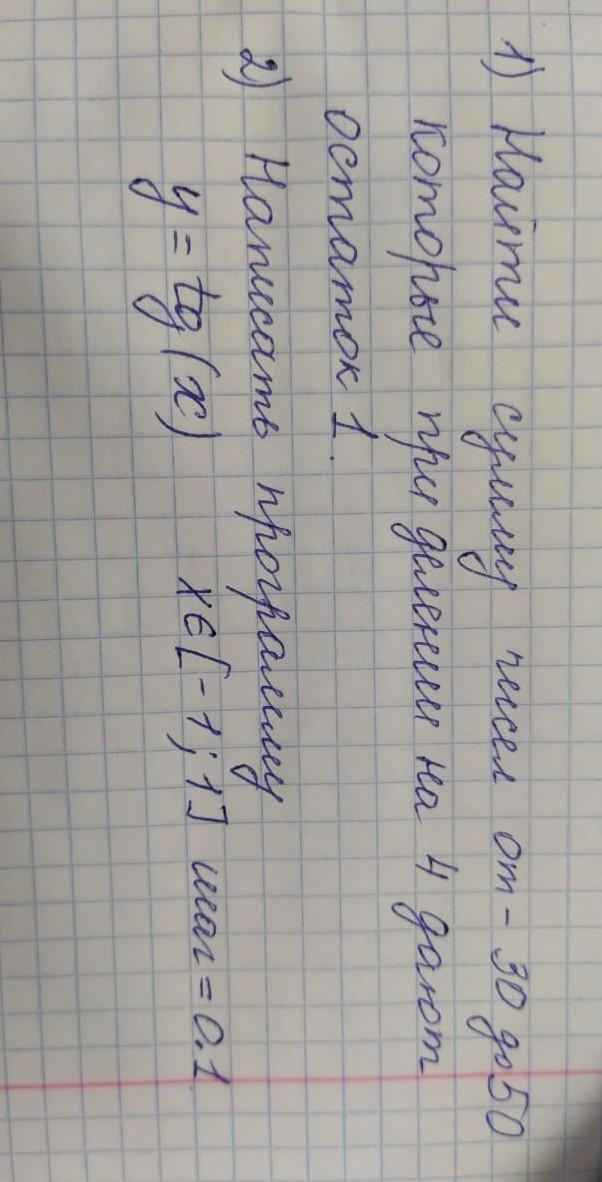 1) Найти сумму чисел от -30 до 50
которые при делении на 4 дают
остаток 1.
2) Написать программу
y = tg(x) x∈[-1; 1] шаг = 0.1